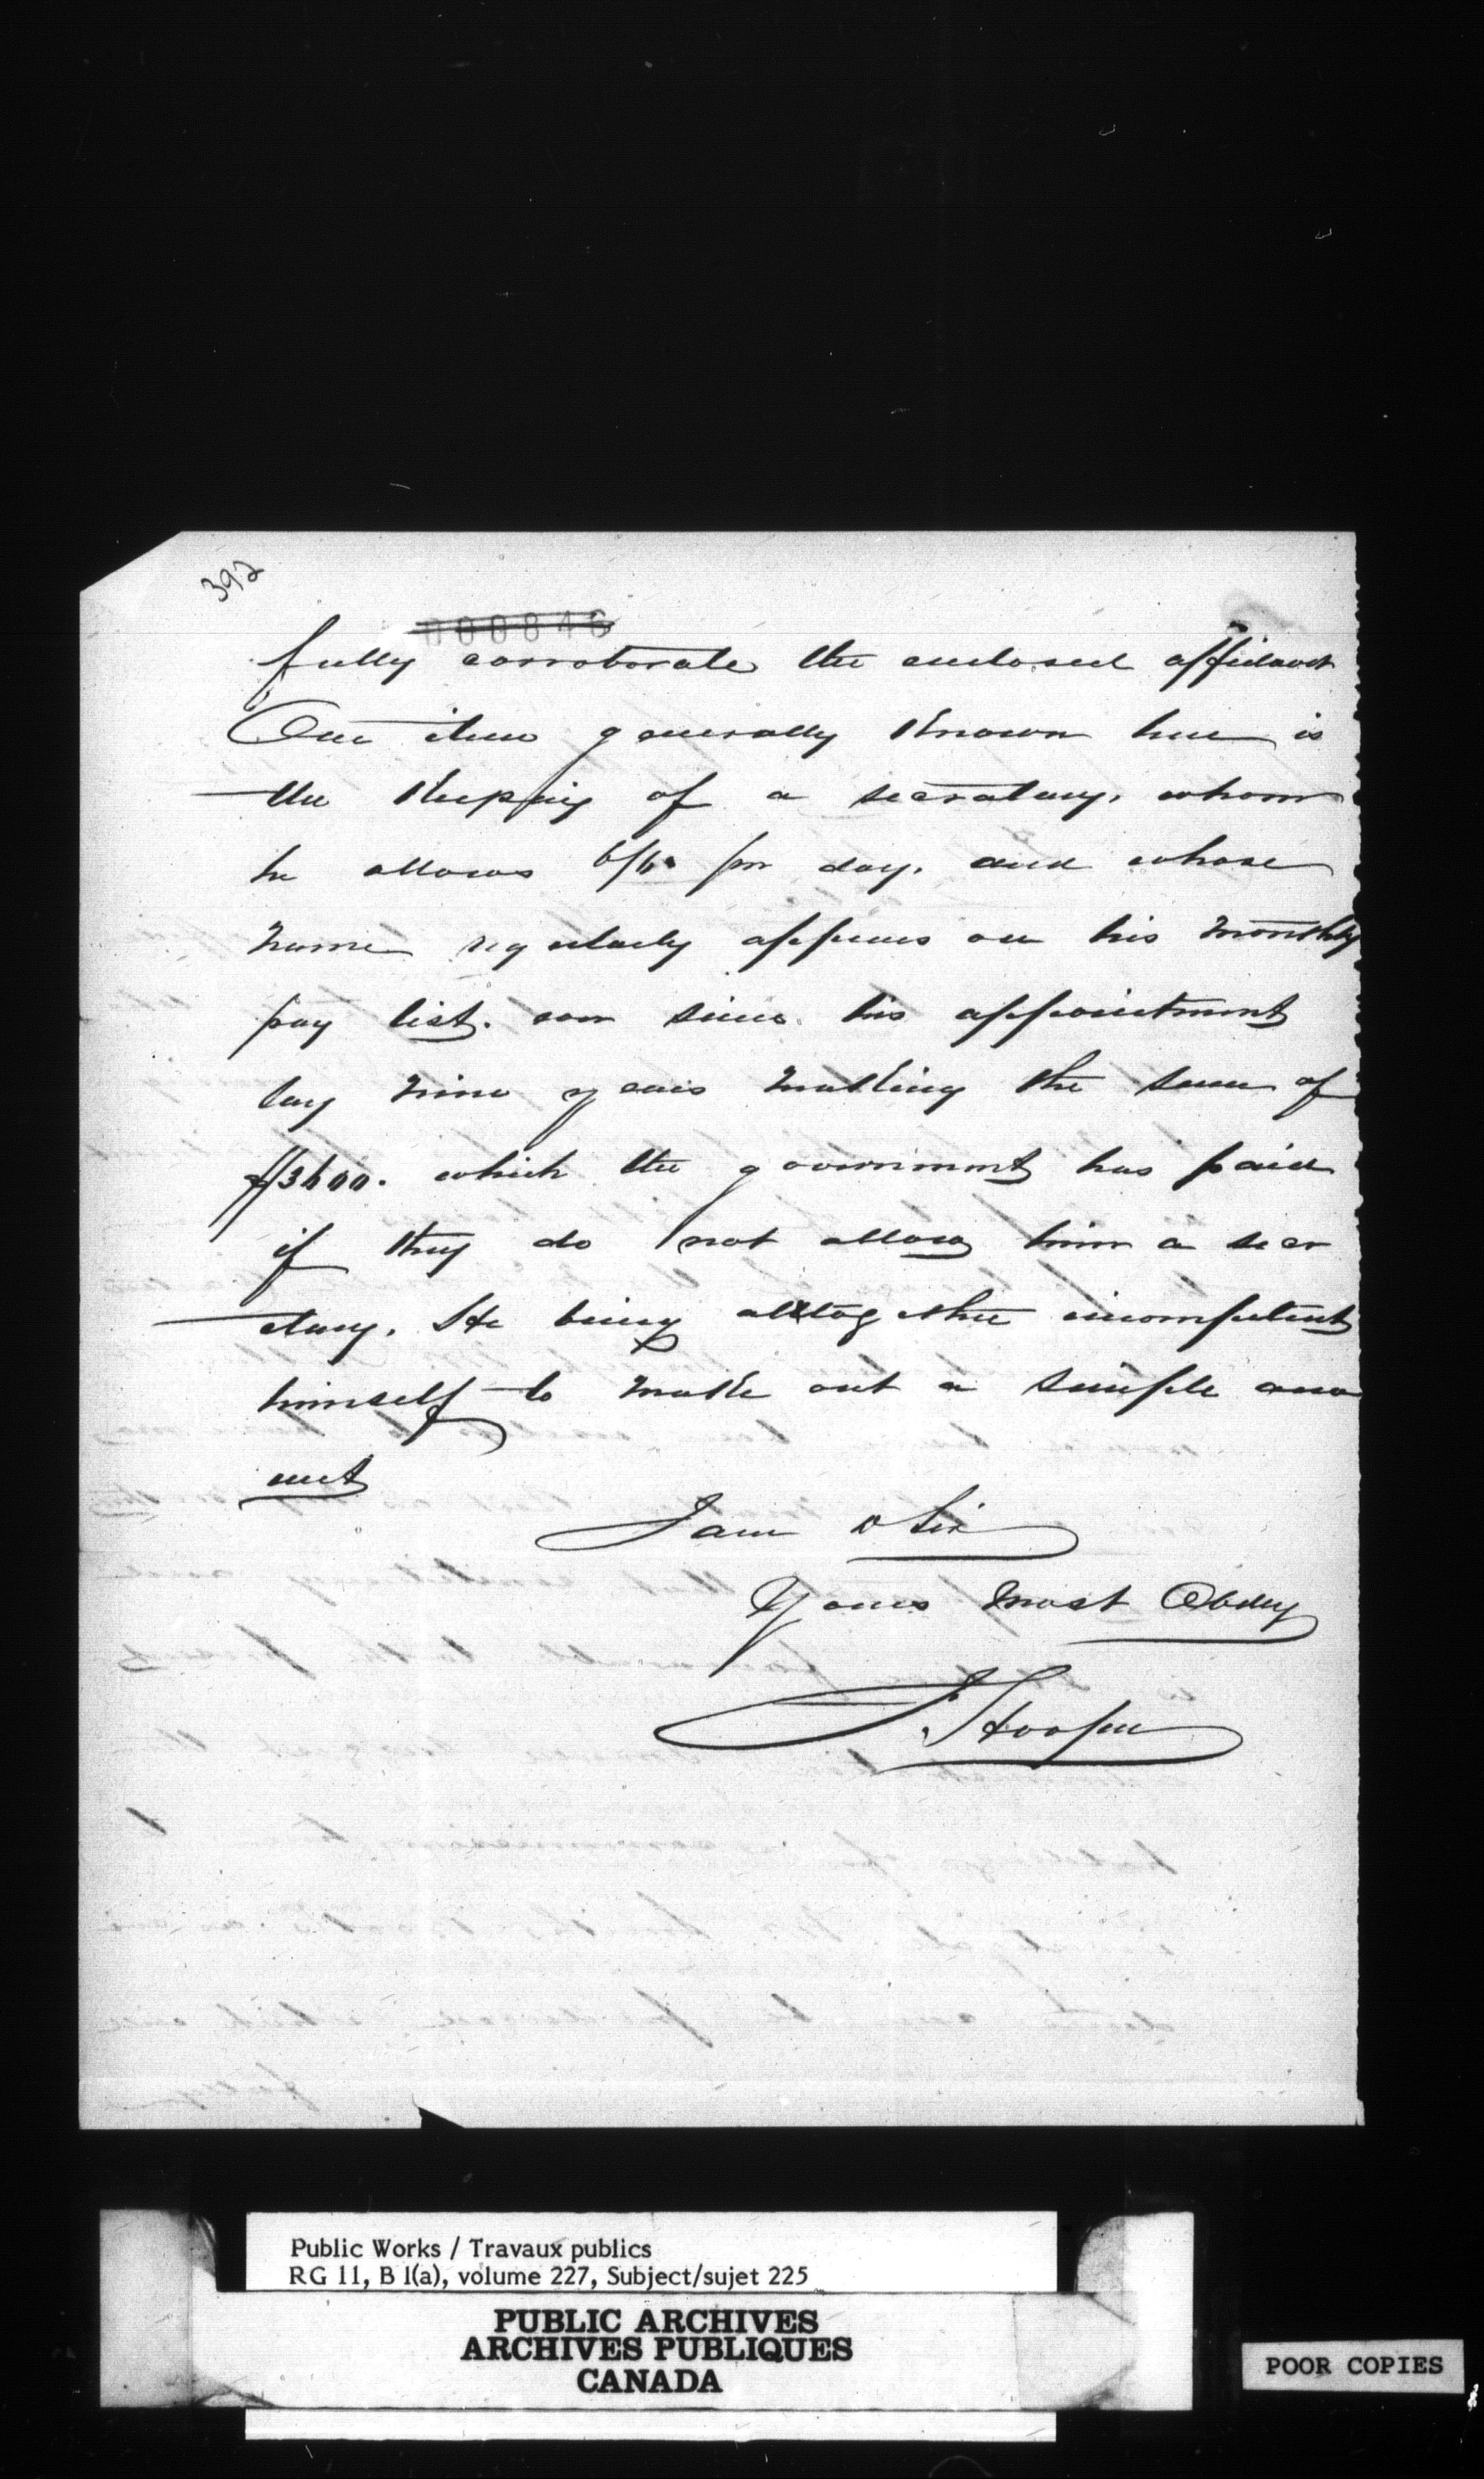 392
000846
fully corroborate the enclosed affidavit
One item generally known here is
the keeping of a secratary. whom
he allows 6/6 per day. and whose
name regularly appears on his monthly
pay list. ever since his appointment
say nine years making the sum of
which the government has paid
if they do not allow him a secr
etary. He being alltogether incompetent
himself to make out a simple acco
unt
I am Sir
Yours most Obdly
J. Hooper
Public Works / Travaux publics
RG 11, B 1(a), volume 227, Subject/sujet 225
PUBLIC ARCHIVES
ARCHIVES PUBLIQUES
CANADA
POOR COPIES